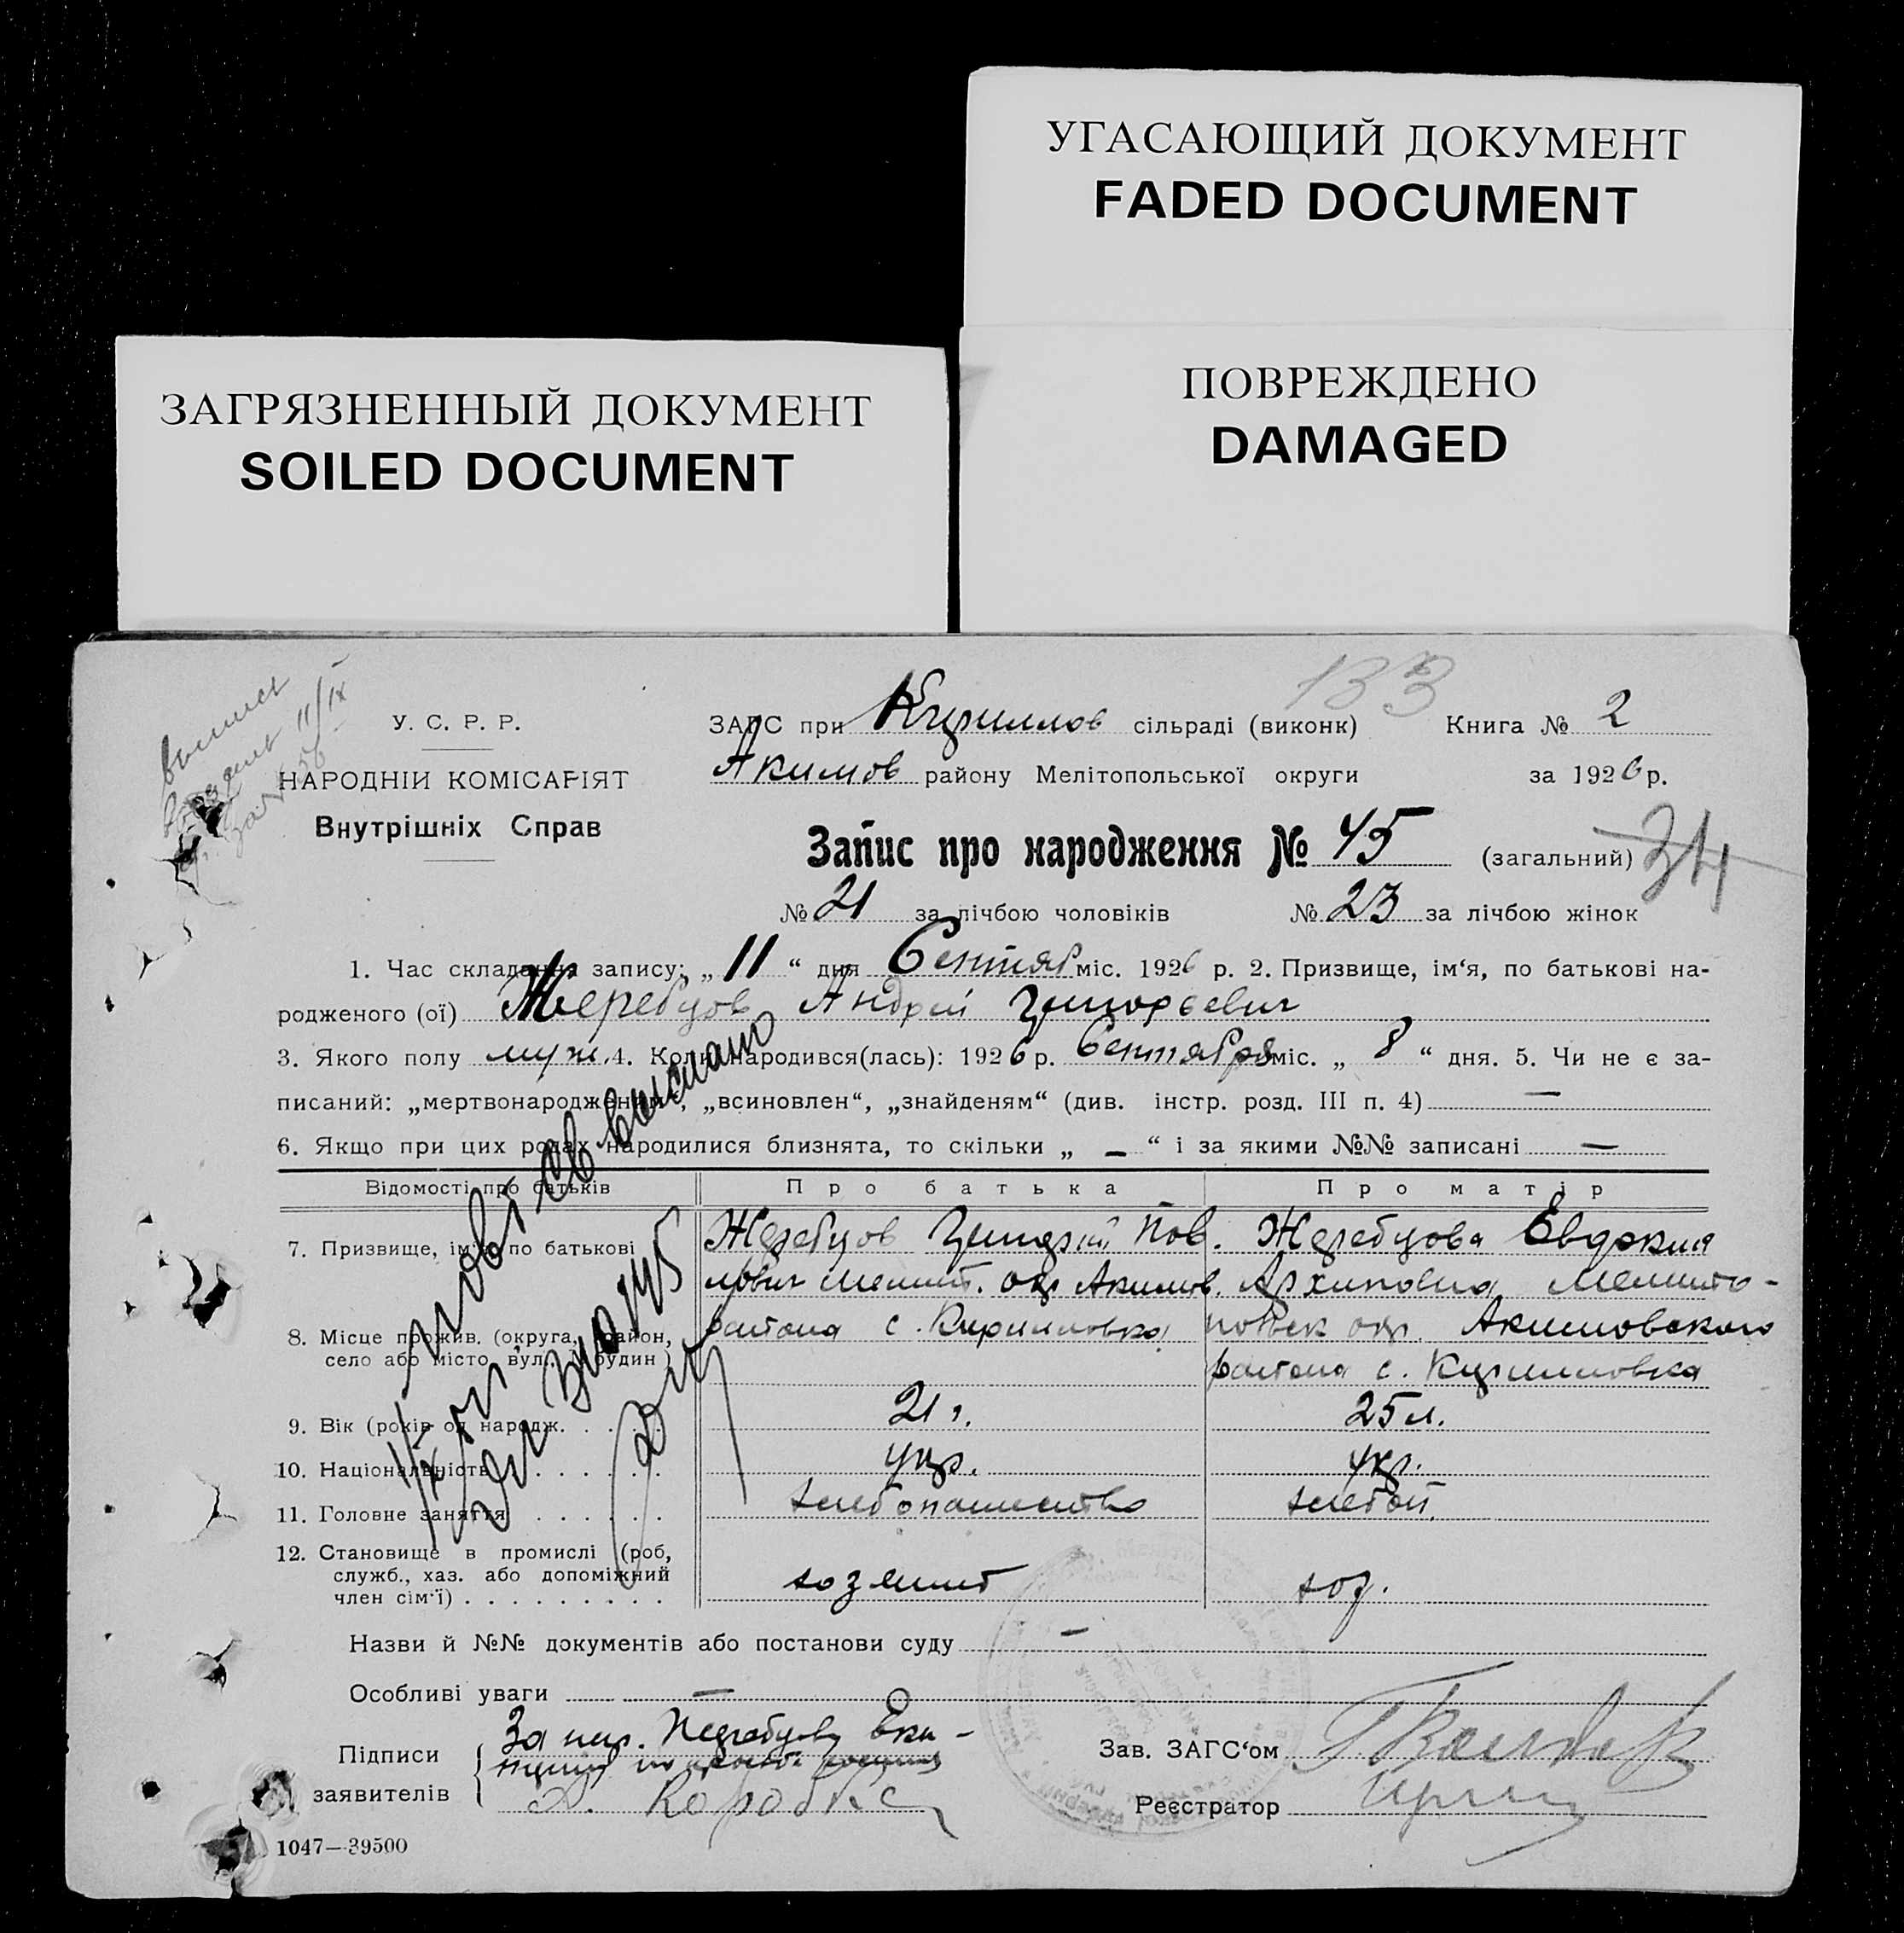 УГАСАЮЩИЙ ДОКУМЕНТ
FADED DOCUMENT
ПОВРЕЖДЕНО
DAMAGED
ЗАГРЯЗНЕННЫЙ ДОКУМЕНТ
SOILED DOCUMENT
133
У. С. Р. Р.
НАРОДНІЙ КОМІСАРІЯТ
Внутрішніх Справ
ЗАГС при Кириллов сільраді (виконк) Книга № 2
Акимов району Мелітопольської округи за 1926 р.
Запис про народження № 45 (загальний) 34
№ 21 за лічбою чоловіків № 23 за лічбою жінок
1. Час складання запису: „ 11 “ дня Сентяб міс. 1926 р. 2. Призвище, ім‘я, по батькові на-
родженого (ої) Жеребцов Андрей Григорьевич
3. Якого полу муж. 4. Коли народився(лась): 1926 р. Сентября міс. „ 8 “ дня. 5. Чи не є за-
писаний: „мертвонароджений“, „всиновлен“, „знайденям“ (див. інстр. розд. III п. 4) —
6. Якщо при цих родах народилися близнята, то скільки „ — “ і за якими №№ записані —
Відомості про батьків Про батька Про матір
7. Призвище, ім‘я по батькові
Жеребцов Григорий Пав.
лович Мелит. окр Акимов.
района с. Кирилловка
Жеребцова Евдокия
Архиповна Мелито-
польск окр. Акимовского
района с. Кирилловка
8. Місце прожив. (округа, район,
село або місто, вул., будин)
9. Вік (років од народж. 21 г. 25 л.
10. Національність укр. укр.
11. Головне заняття хлебопашество хлебоп.
12. Становище в промислі (роб,
служб., хаз. або допоміжний
член сім‘ї) хозяин хоз.
Назви й №№ документів або постанови суду —
Особливі уваги —
Підписи
заявителів
За нег. Жеребцову Ека-
Коробка
Зав. ЗАГС‘ом
Реєстратор
1047—39500